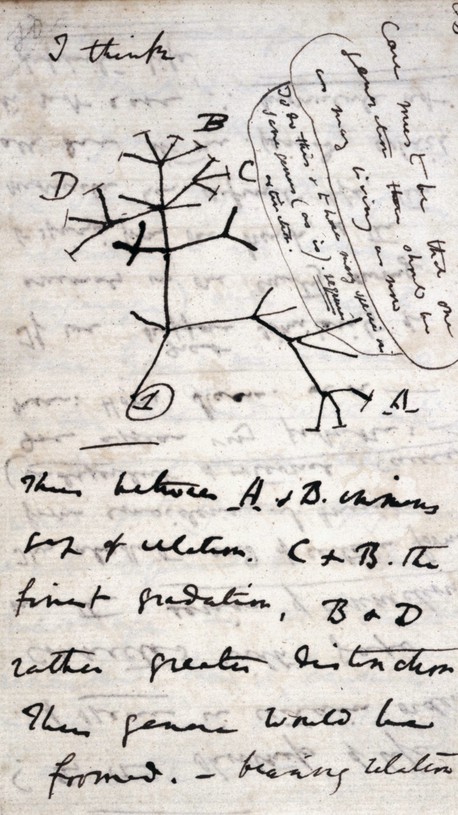 I think
Case must be that one
generation then should be
as many living as now
To do this & to have many species in
same genus (as is) requires
extinction.
B
C
D
A
1
Thus between A & B. immens
gap of relation. C & B. the
finest gradation, B & D
rather greater distinction
Thus genera would be
formed. – bearing relation